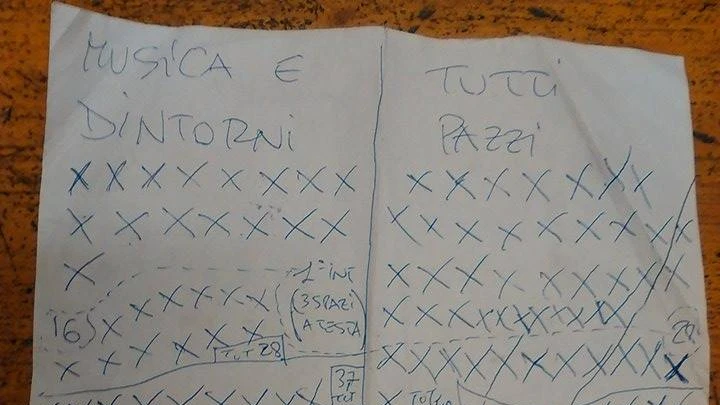 MUSICA E
DINTORNI
X X X X X X X X
X X X X X X X
X
1° INT
(3 SPAZI
A TESTA
X X X X X
16) X X X X X
X X X X X X
TUT 28
37
TUT
TUTTI
PAZZI
X X X X X X X
X X X X X X X X
X X X X X X X X
X X X X X X X X X
29
X X X X X X X X X X X